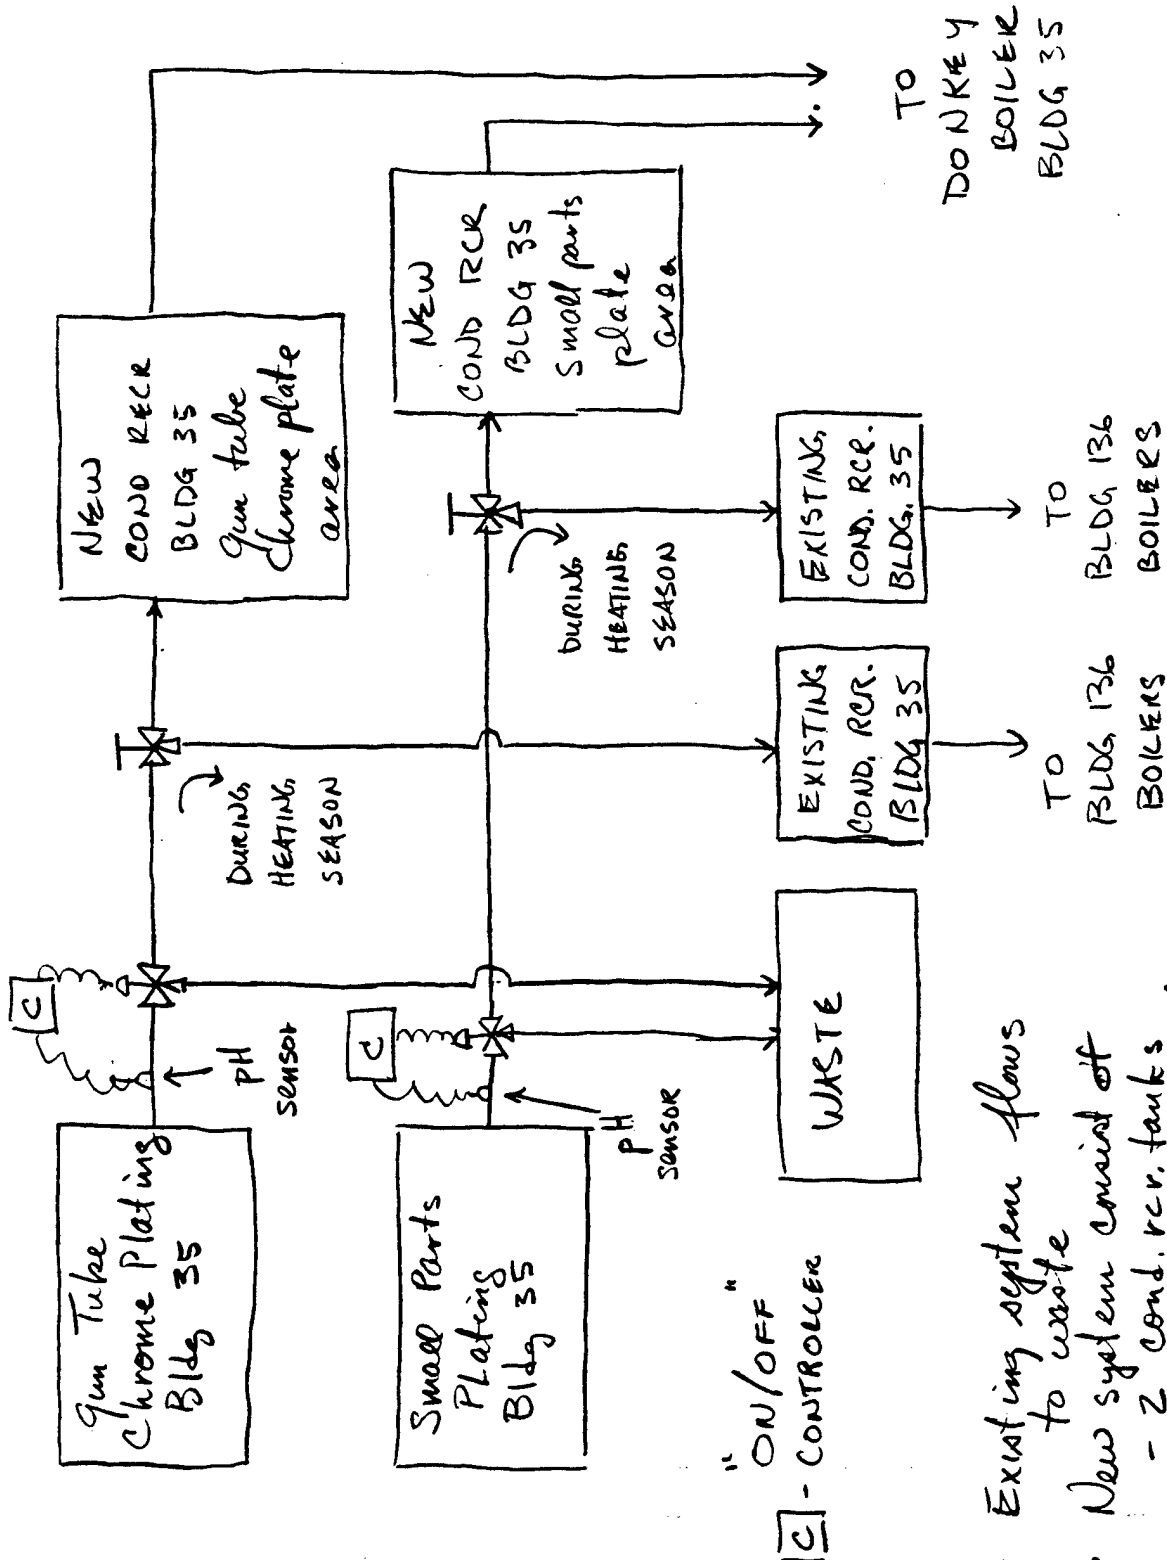 Gun Tube
Chrome Plating
Bldg 35
C
pH
sensor
DURING
HEATING
SEASON
NEW
COND RECR
BLDG 35
Gun tube
Chrome plate
area
Small Parts
PLating
Bldg 35
C
pH
sensor
DURING
HEATING
SEASON
NEW
COND RCR
BLDG 35
Small parts
plate
area
TO
DONKEY
BOILER
BLDG 35
WASTE
EXISTING
COND. RCR.
BLDG 35
TO
BLDG 136
BOILERS
EXISTING
COND. RCR.
BLDG. 35
TO
BLDG 136
BOILERS
"ON/OFF"
C - CONTROLLER
Existing system flows
to waste
New system consist of
- 2 cond. rcr. tanks